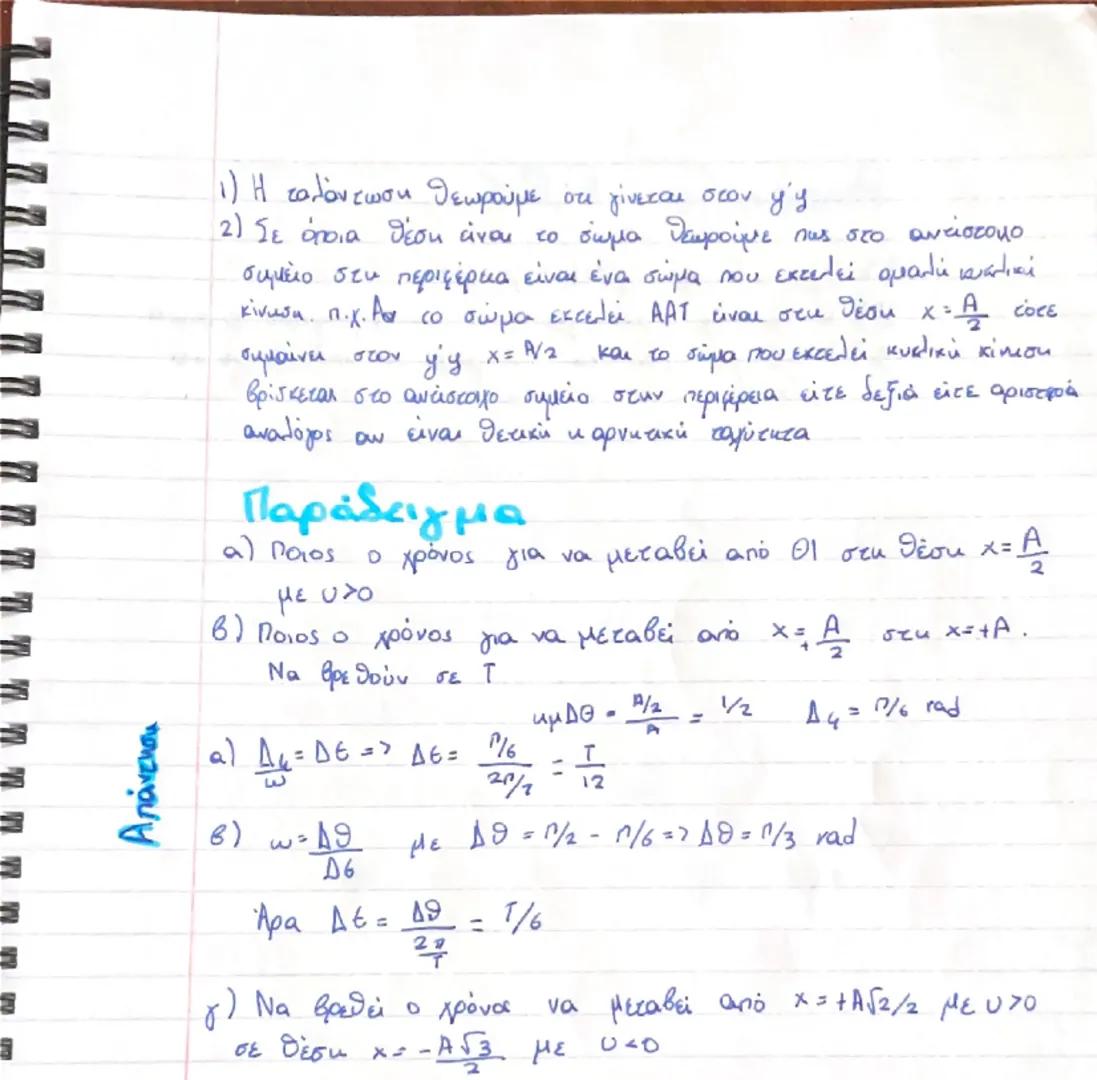 1) Η ταλάντωση θεωρούμε ότι γίνεται στον y'y
2) Σε όποια θέση είναι το σώμα θεωρούμε πως στο αντίστοιχο
σημείο στη περιφέρεια είναι ένα σώμα που εκτελεί ομαλή κυκλική
κίνηση. π.χ. Αν το σώμα εκτελεί ΑΑΤ είναι στη θέση x = A/2 τότε
σημαίνει στον y'y x = A/2 και το σώμα που εκτελεί κυκλική κίνηση
βρίσκεται στο αντίστοιχο σημείο στην περιφέρεια είτε δεξιά είτε αριστερά
αναλόγος αν είναι θετική η αρνητική ταχύτητα
Παράδειγμα
α) Ποιος ο χρόνος για να μεταβεί από ΘΙ στη θέση x = A/2
με υ>0
β) Ποιος ο χρόνος για να μεταβεί από x = +A/2 στη x=+A.
Να βρεθούν σε T
ημΔθ = A/2 / A = 1/2 Δφ = π/6 rad
Απάντηση
α) Δφ/ω = Δt => Δt = π/6 / 2π/T = T/12
β) ω = Δθ/Δt με Δθ = π/2 - π/6 => Δθ = π/3 rad
Άρα Δt = Δθ / 2π/T = T/6
γ) Να βρεθεί ο χρόνος να μεταβεί από x = +A√2/2 με υ>0
σε θέση x = -A√3/2 με υ<0